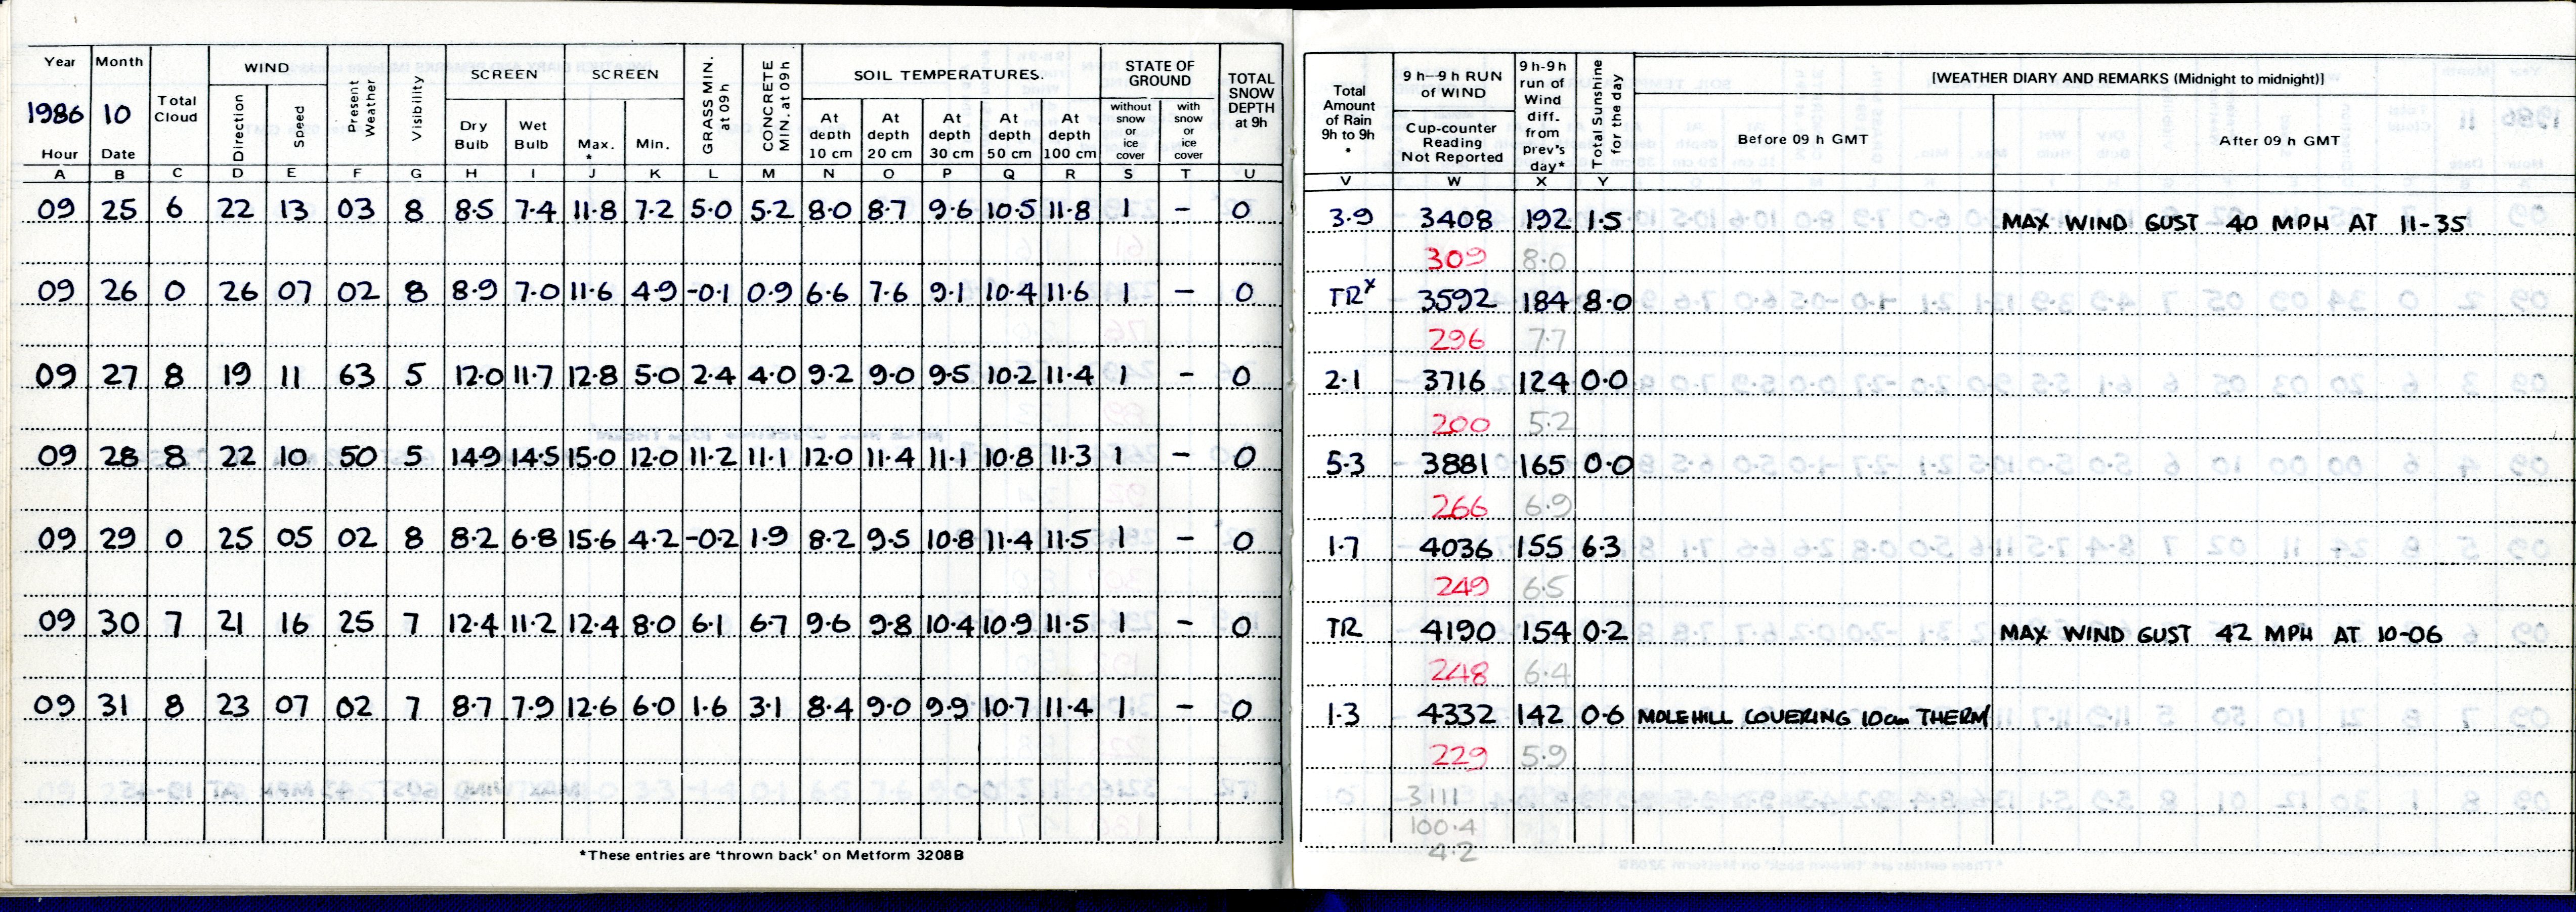 Year Month WIND SCREEN SCREEN SOIL TEMPERATURES. STATE OF GROUND
1986 10 Total Cloud Direction Speed Present Weather Visibility Dry Bulb Wet Bulb Max. * Min. GRASS MIN. at 09 h CONCRETE MIN. at 09 h At depth 10 cm At depth 20 cm At depth 30 cm At depth 50 cm At depth 100 cm without snow or ice cover with snow or ice cover TOTAL SNOW DEPTH at 9h
Hour Date
A B C D E F G H I J K L M N O P Q R S T U
09 25 6 22 13 03 8 8.5 7.4 11.8 7.2 5.0 5.2 8.0 8.7 9.6 10.5 11.8 1 – 0
09 26 0 26 07 02 8 8.9 7.0 11.6 4.9 -0.1 0.9 6.6 7.6 9.1 10.4 11.6 1 – 0
09 27 8 19 11 63 5 12.0 11.7 12.8 5.0 2.4 4.0 9.2 9.0 9.5 10.2 11.4 1 – 0
09 28 8 22 10 50 5 14.9 14.5 15.0 12.0 11.2 11.1 12.0 11.4 11.1 10.8 11.3 1 – 0
09 29 0 25 05 02 8 8.2 6.8 15.6 4.2 -0.2 1.9 8.2 9.5 10.8 11.4 11.5 1 – 0
09 30 7 21 16 25 7 12.4 11.2 12.4 8.0 6.1 6.7 9.6 9.8 10.4 10.9 11.5 1 – 0
09 31 8 23 07 02 7 8.7 7.9 12.6 6.0 1.6 3.1 8.4 9.0 9.9 10.7 11.4 1 – 0
*These entries are 'thrown back' on Metform 3208B
Total Amount of Rain 9h to 9h * 9 h—9 h RUN of WIND Cup-counter Reading Not Reported 9 h-9 h run of Wind diff. from prev's day* Total Sunshine for the day [WEATHER DIARY AND REMARKS (Midnight to midnight)]
Before 09 h GMT After 09 h GMT
V W X Y
3.9 3408 192 1.5 MAX WIND GUST 40 MPH AT 11-35
309 8.0
TR x 3592 184 8.0
296 7.7
2.1 3716 124 0.0
200 5.2
5.3 3881 165 0.0
266 6.9
1.7 4036 155 6.3
249 6.5
TR 4190 154 0.2 MAX WIND GUST 42 MPH AT 10-06
248 6.4
1.3 4332 142 0.6 MOLEHILL COVERING 10cm THERM
229 5.9
3111
100.4
4.2